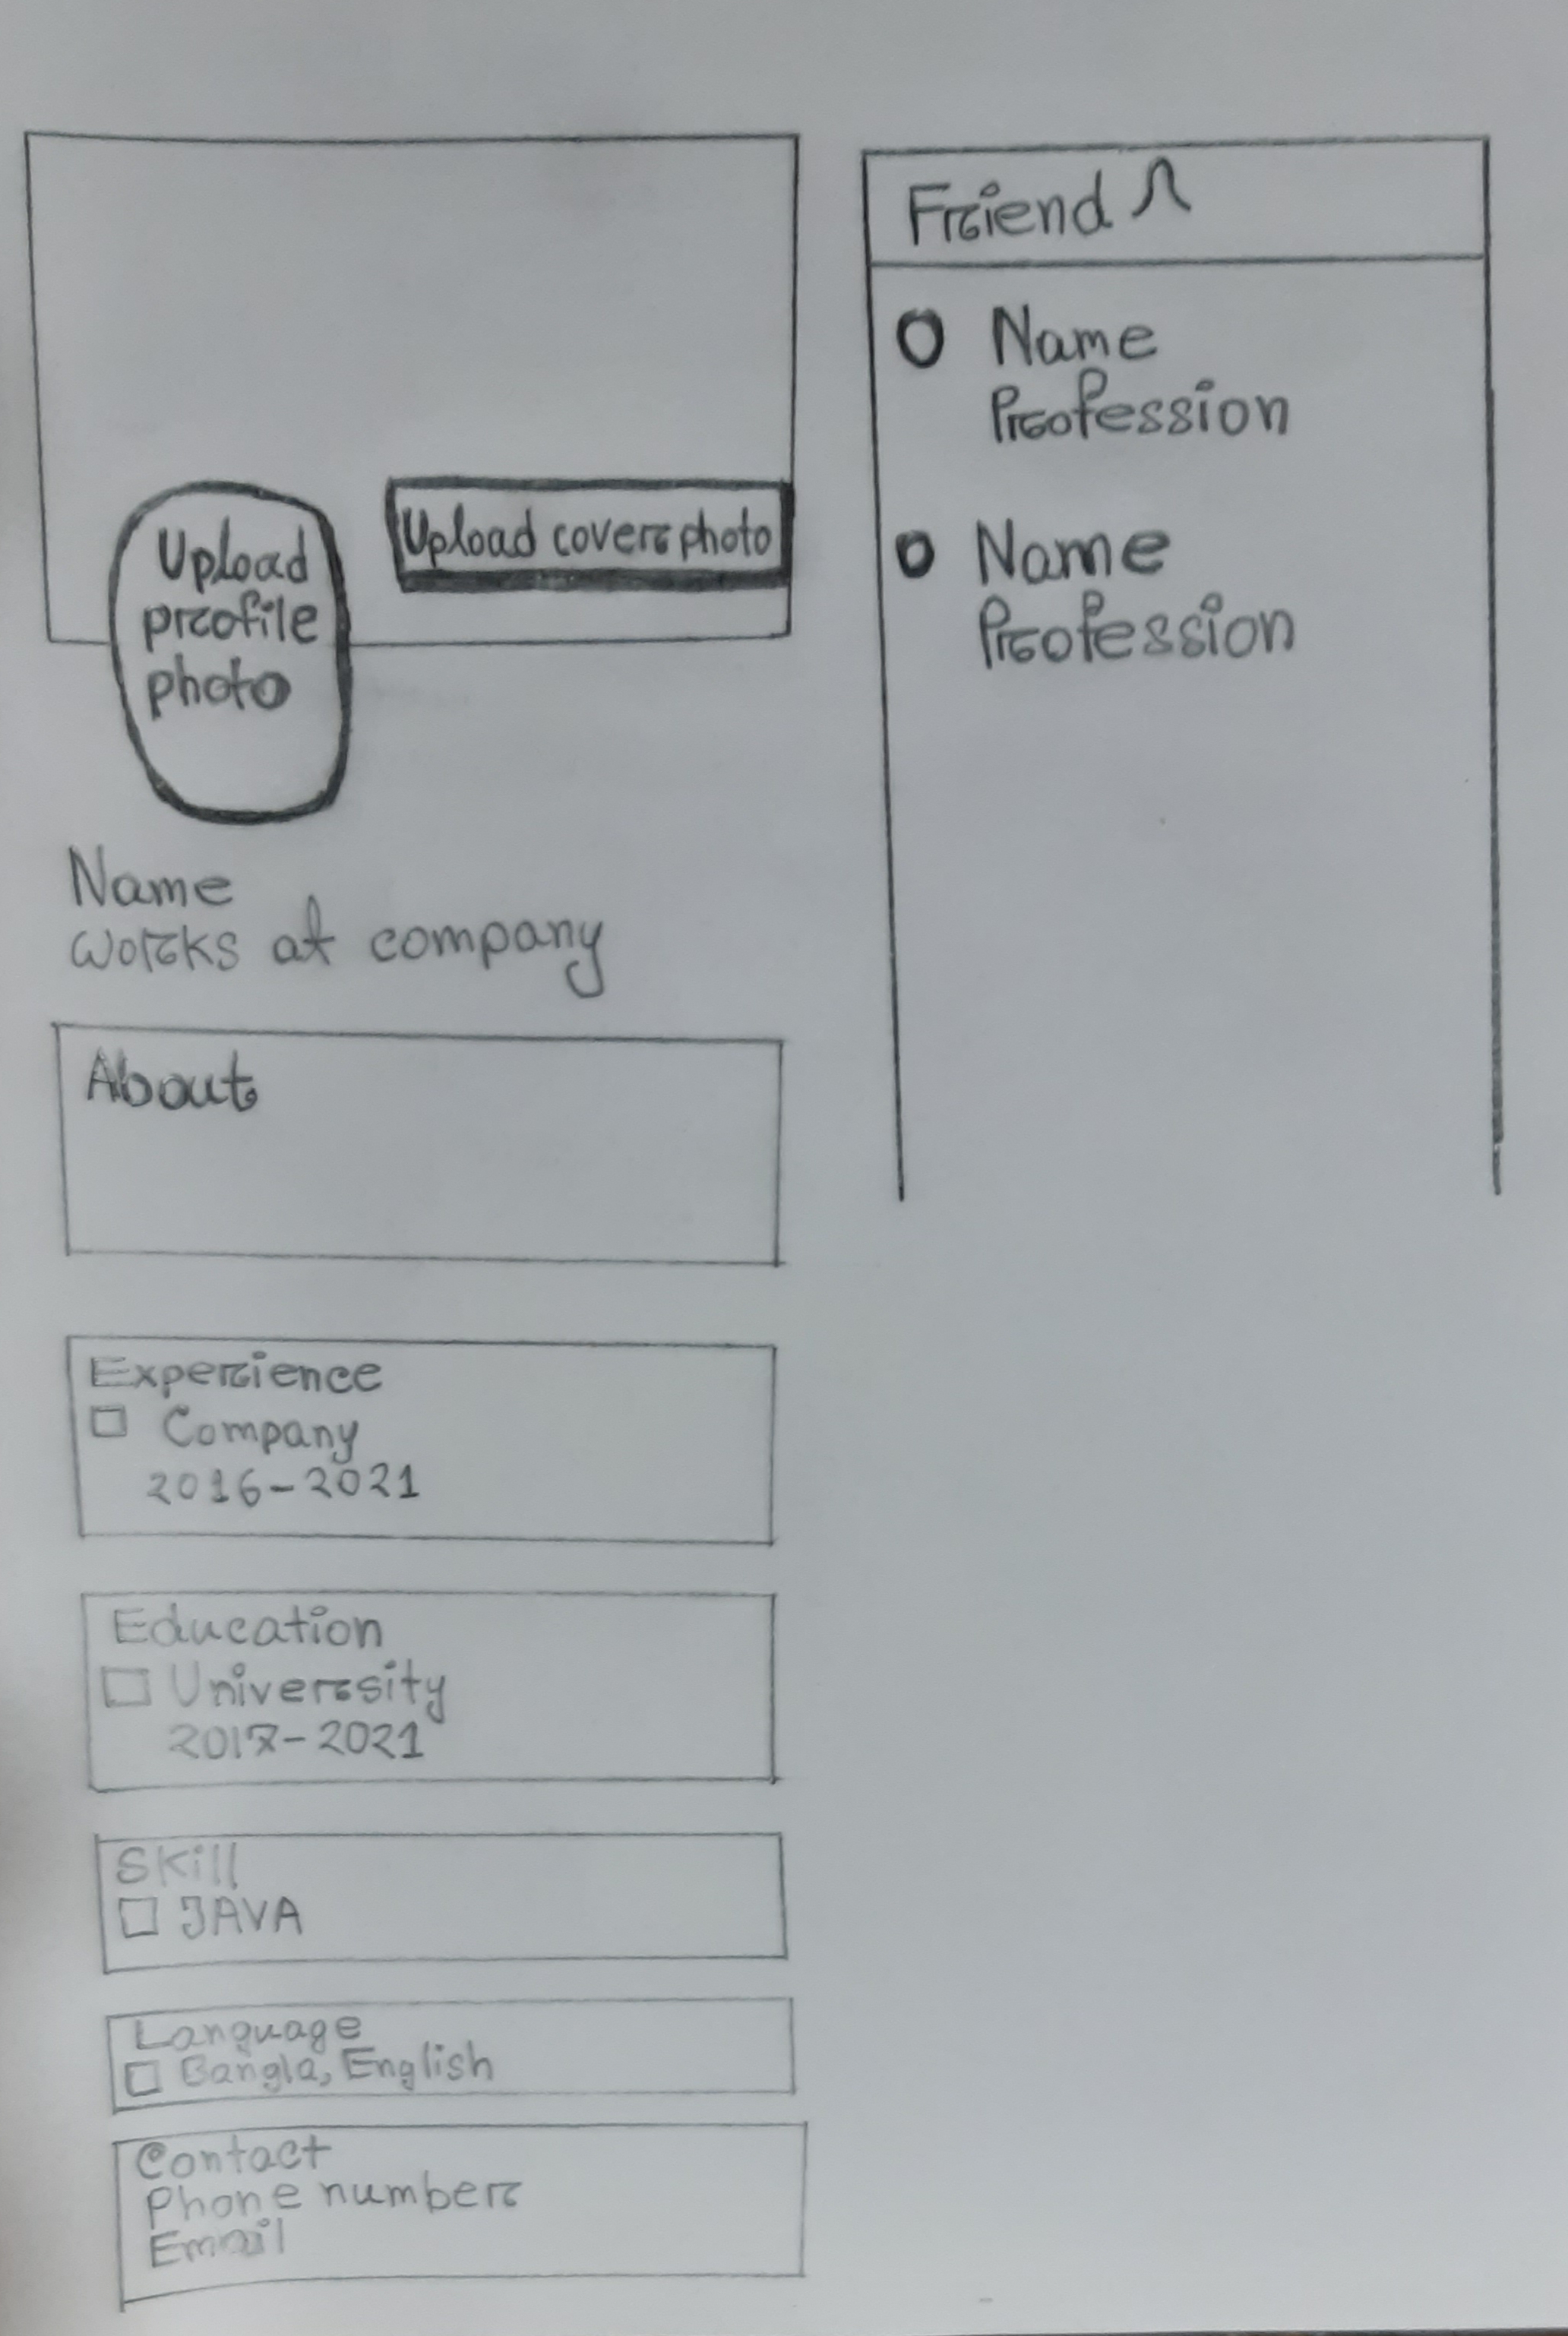 Upload
profile
photo
Upload cover photo
Name
works at company
About
Experience
Company
2016-2021
Education
University
2017-2021
Skill
JAVA
Language
Bangla, English
Contact
Phone number
Email
Friend
Name
Profession
Name
Profession